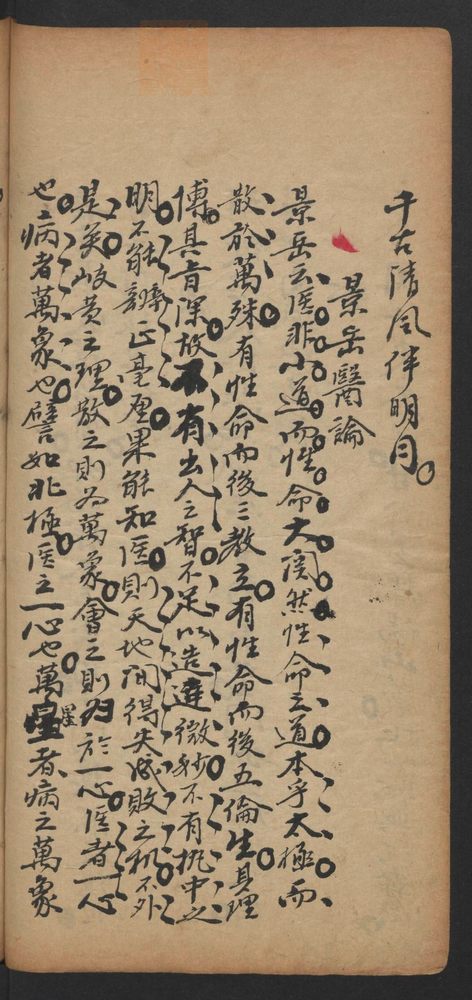 千古清风伴明月
景岳醫論
景岳云医非小道而性命大関然性命之道本乎太極而
散於萬殊有性命而後三教立有性命而後五倫生其理
博其旨深故不有出人之智不足以造達微妙不有執中之
明不能辨正毫厘果能知医則天地间得失成敗之机不外
是矣岐黄之理散之則为萬象會之則归於一心医者一心
也病者萬象也譬如北極医之一心也萬星者病之萬象